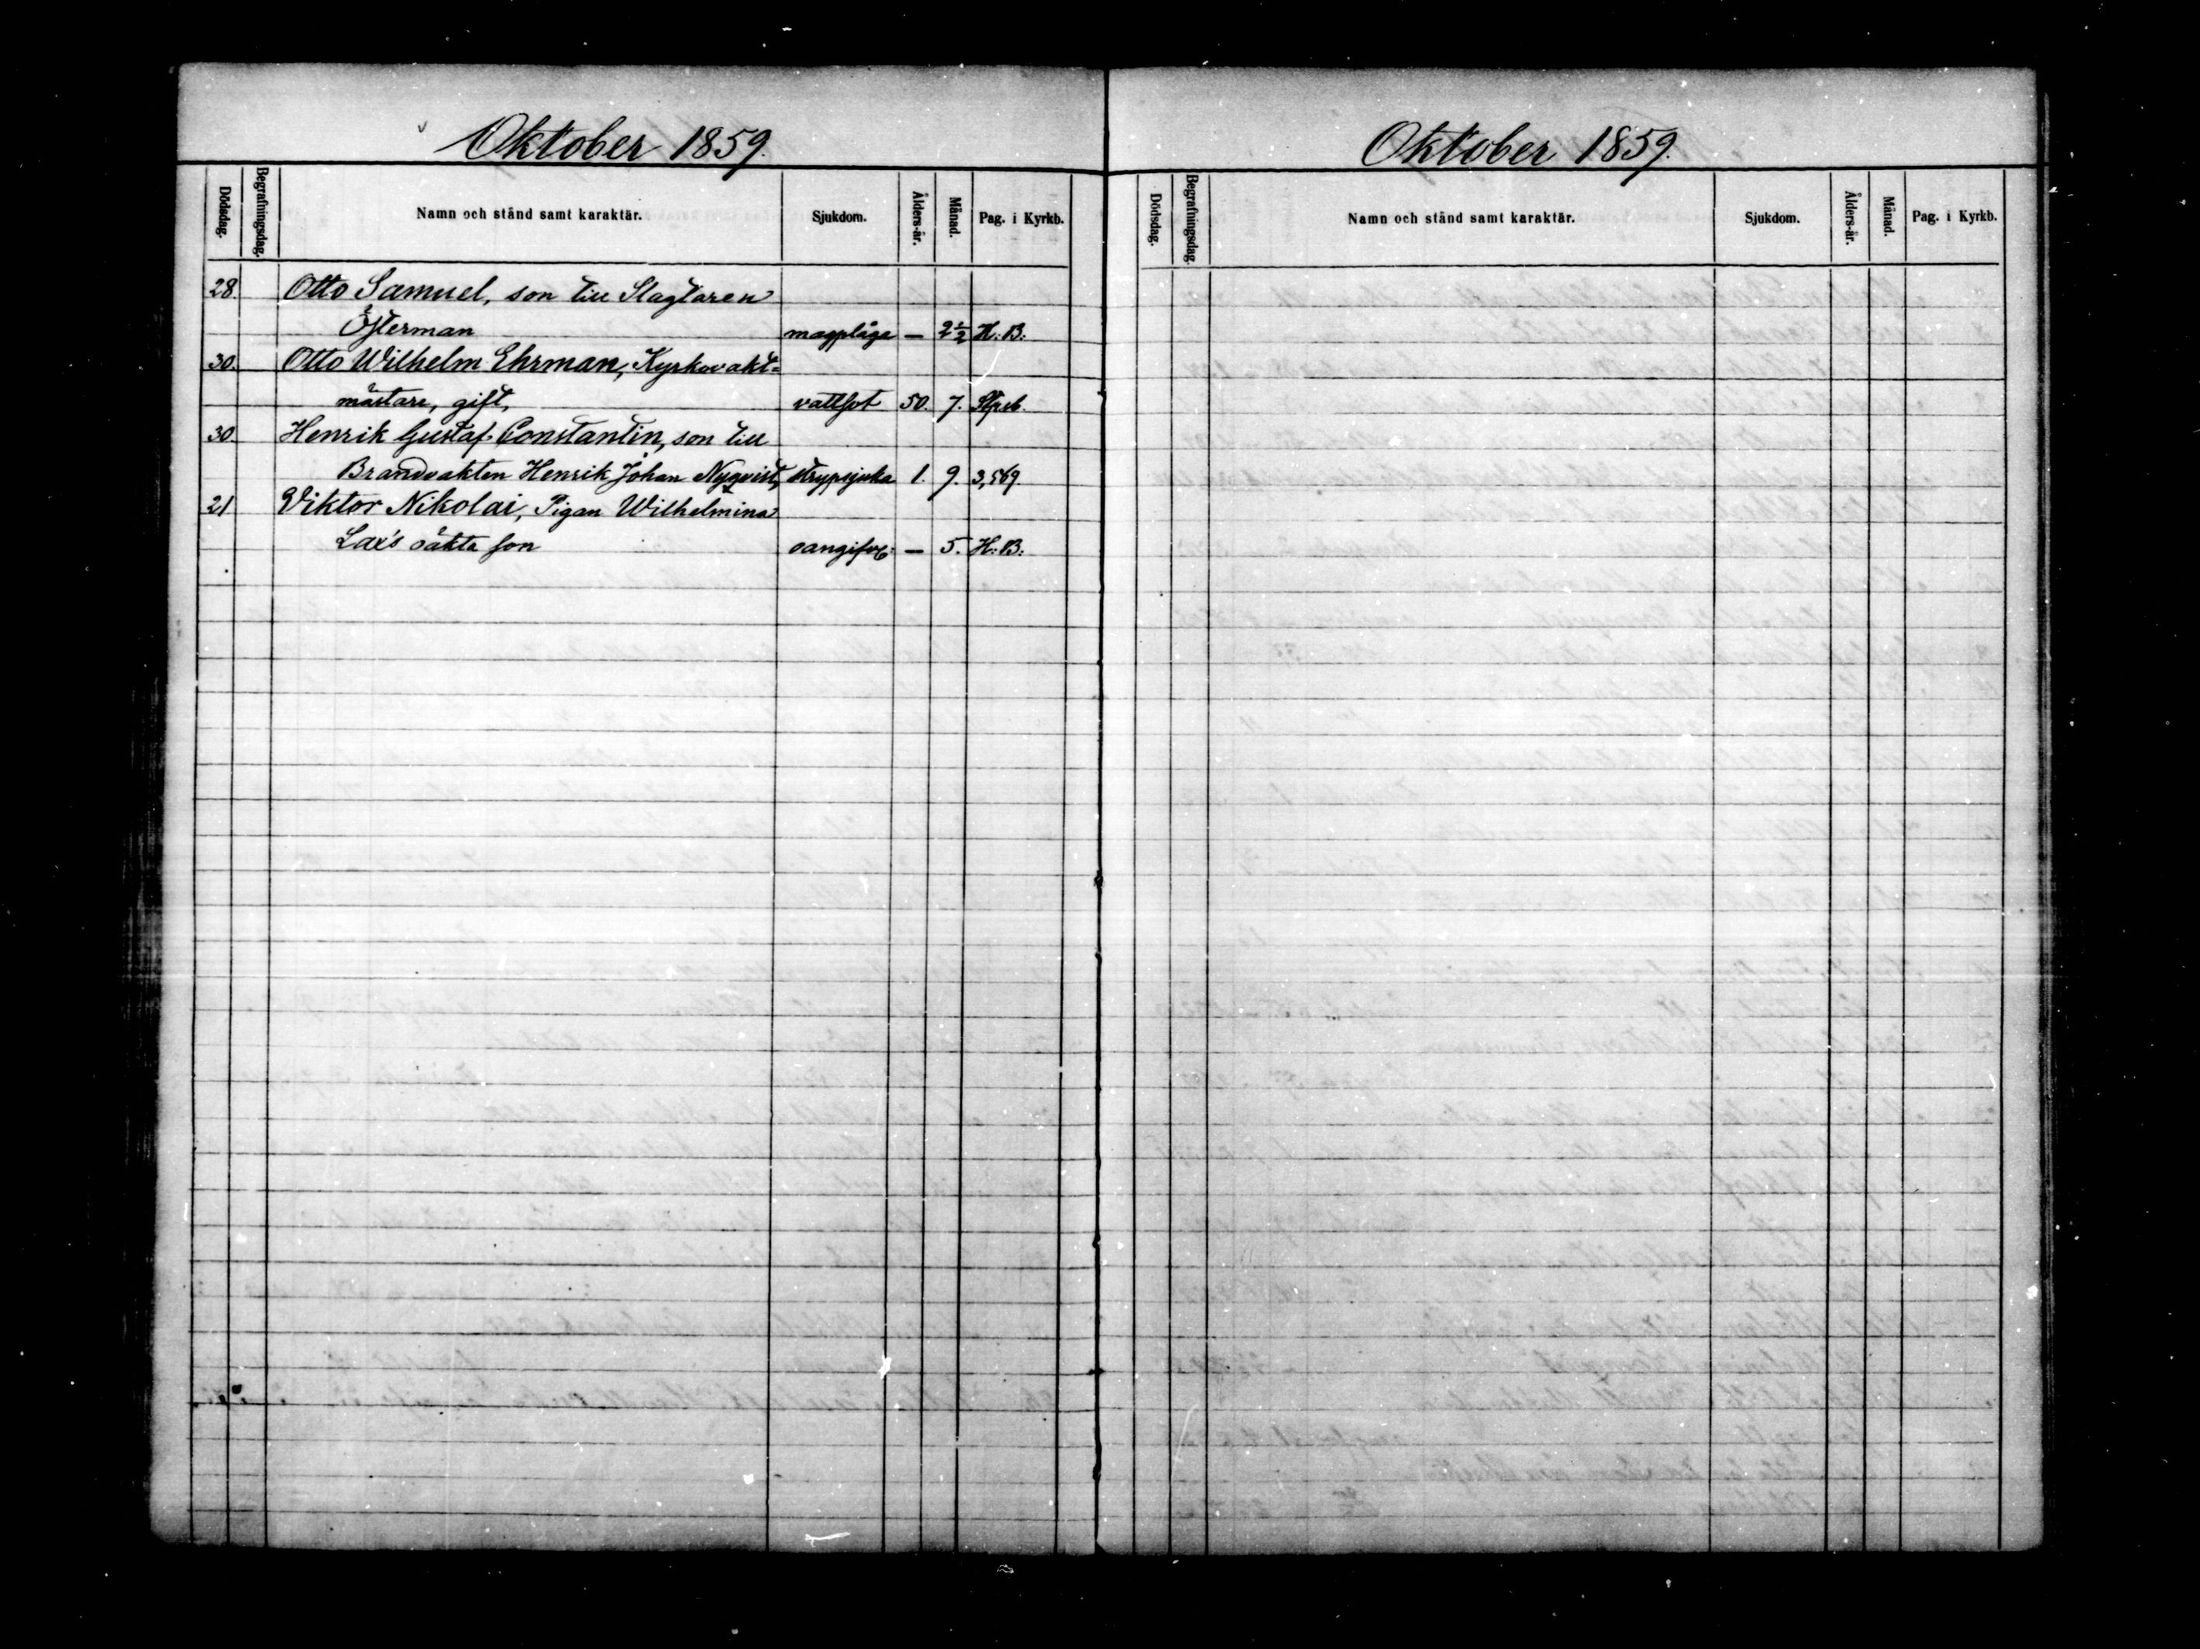 Oktober 1859.
Dödsdag. Begrafningsdag. Namn och stånd samt karaktär. Sjukdom. Ålders-år. Månad. Pag. i Kyrkb.
28. Otto Samuel, son till Slagtaren
Österman magplåga — 2½ H: B:
30. Otto Wilhelm Ehrman, Kyrkovakt=
mästare, gift, vattsot 50. 7.
30 Henrik Gustaf Constantin, son till
Brandvakten Henrik Johan Nyqvist, strypsjuka 1. 9. 3,569
21 Viktor Nikolai, Pigan Wilhelmina
Lax's oäkta son oangifv: — 5. H: B:
Oktober 1859.
Dödsdag. Begrafningsdag. Namn och stånd samt karaktär. Sjukdom. Ålders-år. Månad. Pag. i Kyrkb.